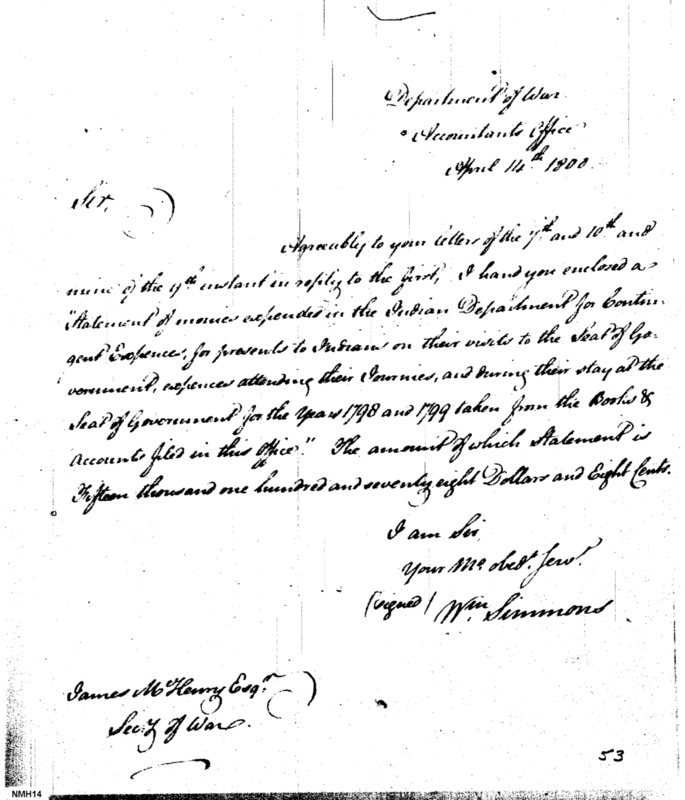 Department of War
Accountants Office
April 14th 1800.
Sir,
Agreeably to your letters of the 7th and 10th and
mine of the 9th instant in reply to the first, I hand you enclosed a
"Statement of monies expended in the Indian Department for Contin-
gent Expences, for presents to Indians on their visits to the Seat of Go-
vernment, expences attending their Journies, and during their stay at the
Seat of Government for the Years 1798 and 1799 taken from the Books &
Accounts filed in this Office." The amount of which Statement is
Fifteen thousand one hundred and seventy eight Dollars and Eight Cents.
I am Sir,
Your Mo. obedt. Servt.
(signed) Wm. Simmons
James McHenry Esqr.
Secy. of War.
53
NMH14